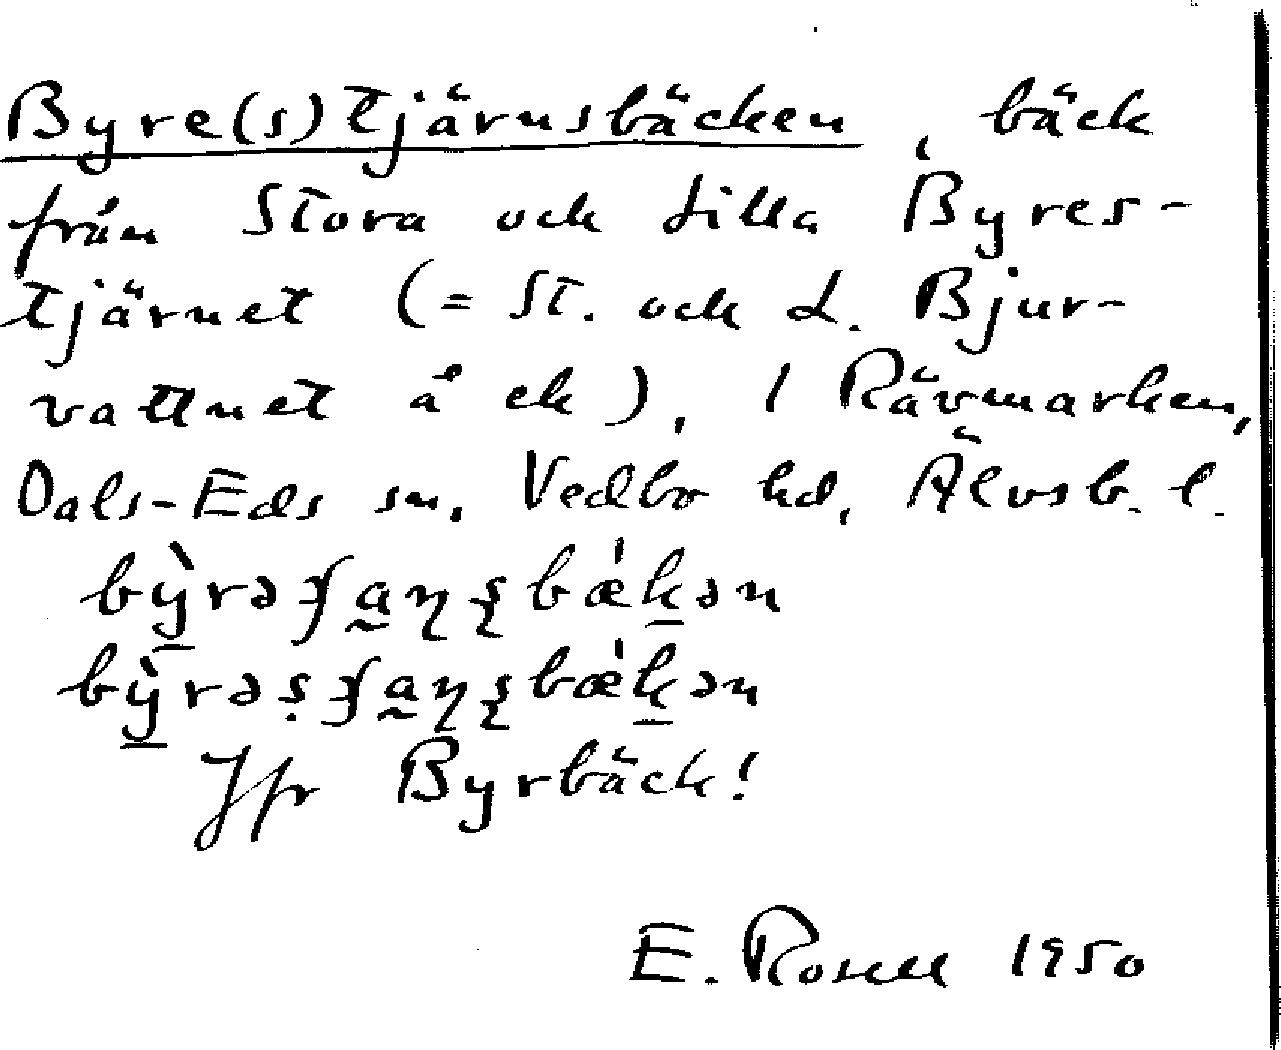 Byre(s)tjärnsbäcken, bäck
från Stora och Lilla Byres-
tjärnet (= St. och L. Bjur-
vattnet å ek), i Rävmarken,
Dals-Eds sn, Vedbo hd, Älvsb. l.
Jfr Byrbäck!
E. Rosell 1950